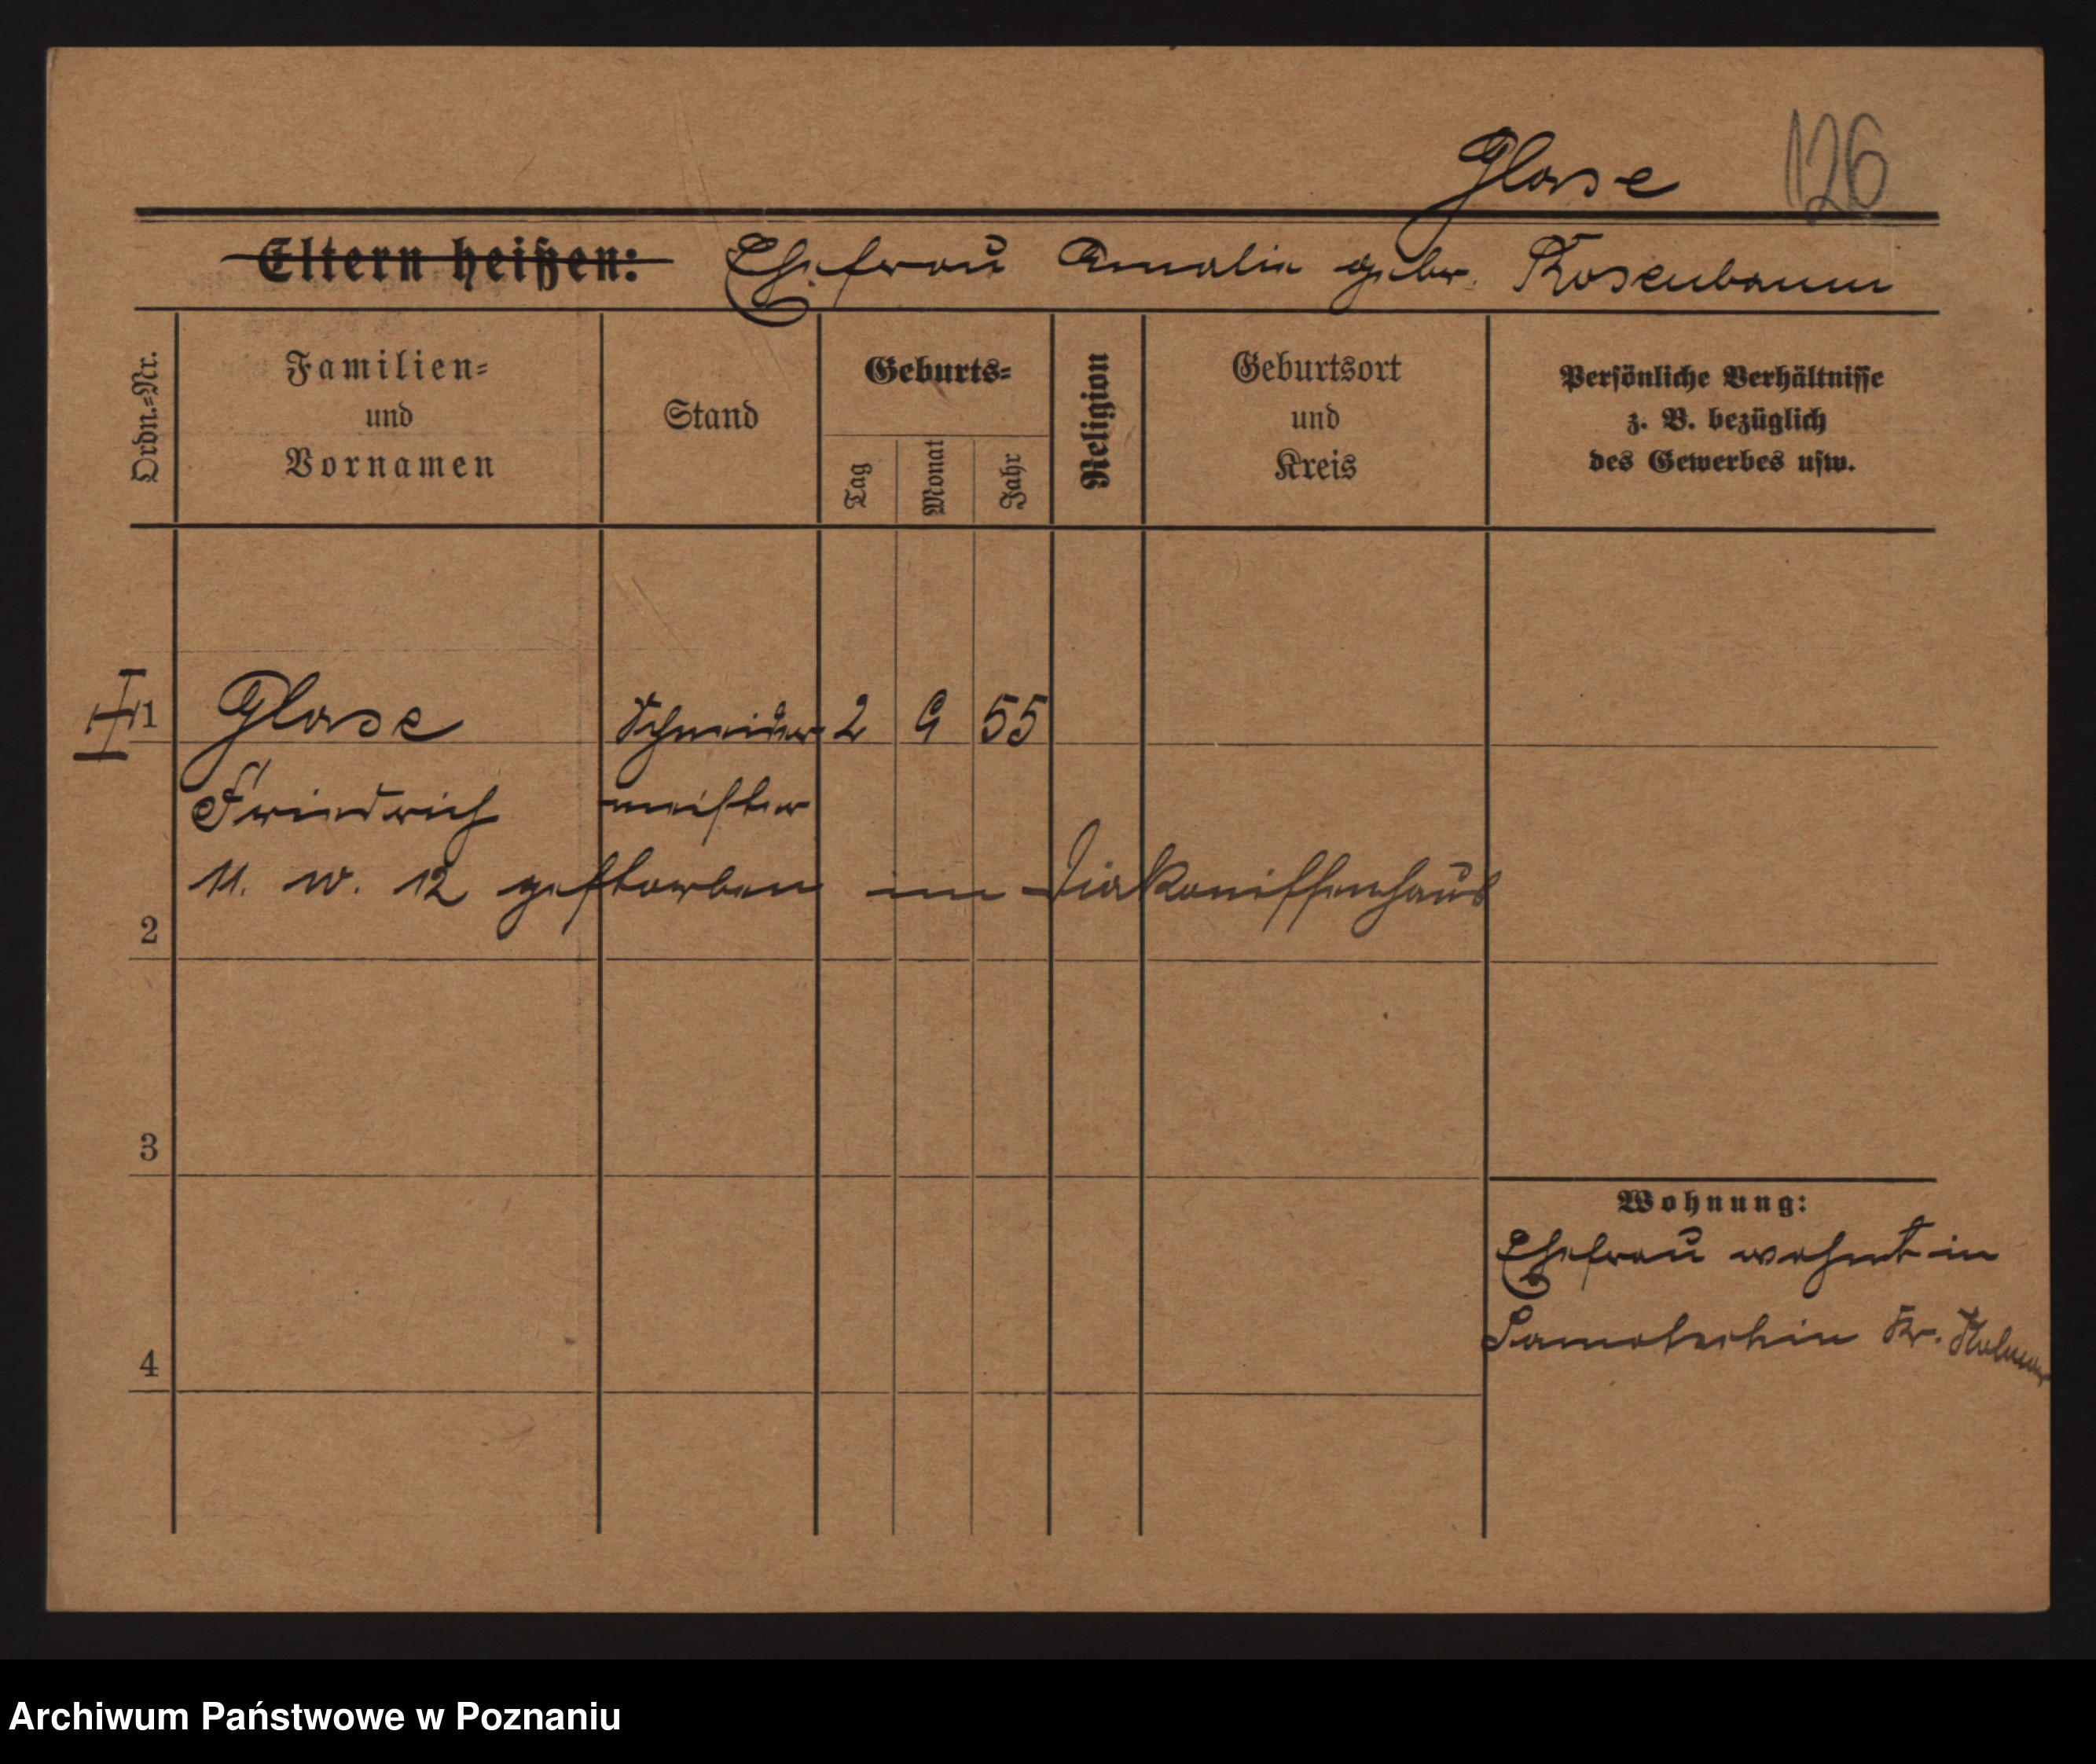 Glase 126
Eltern heißen: Ehefrau Amalie gebr. Rosenbaum
Ordn.=Nr.
Familien=
und
Vornamen
Stand
Geburts=
Tag
Monat
Jahr
Religion
Geburtsort
und
Kreis
Persönliche Verhältnisse
z. B. bezüglich
des Gewerbes usw.
1 Glase Schneider 2 9 55
Friedrich meister
11. 10. 12 gestorben im Diakonissenhaus
2
3
Wohnung:
Ehefrau wohnt in
Samotschin Kr. Kolmar
4
Archiwum Państwowe w Poznaniu